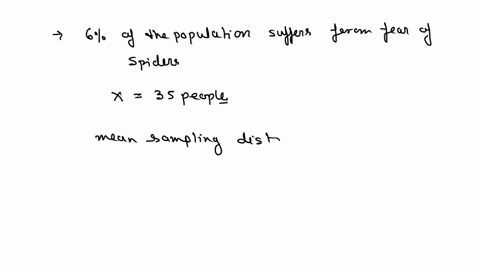 → 6% of the population suffers from fear of
Spiders
x = 35 people
mean sampling dist